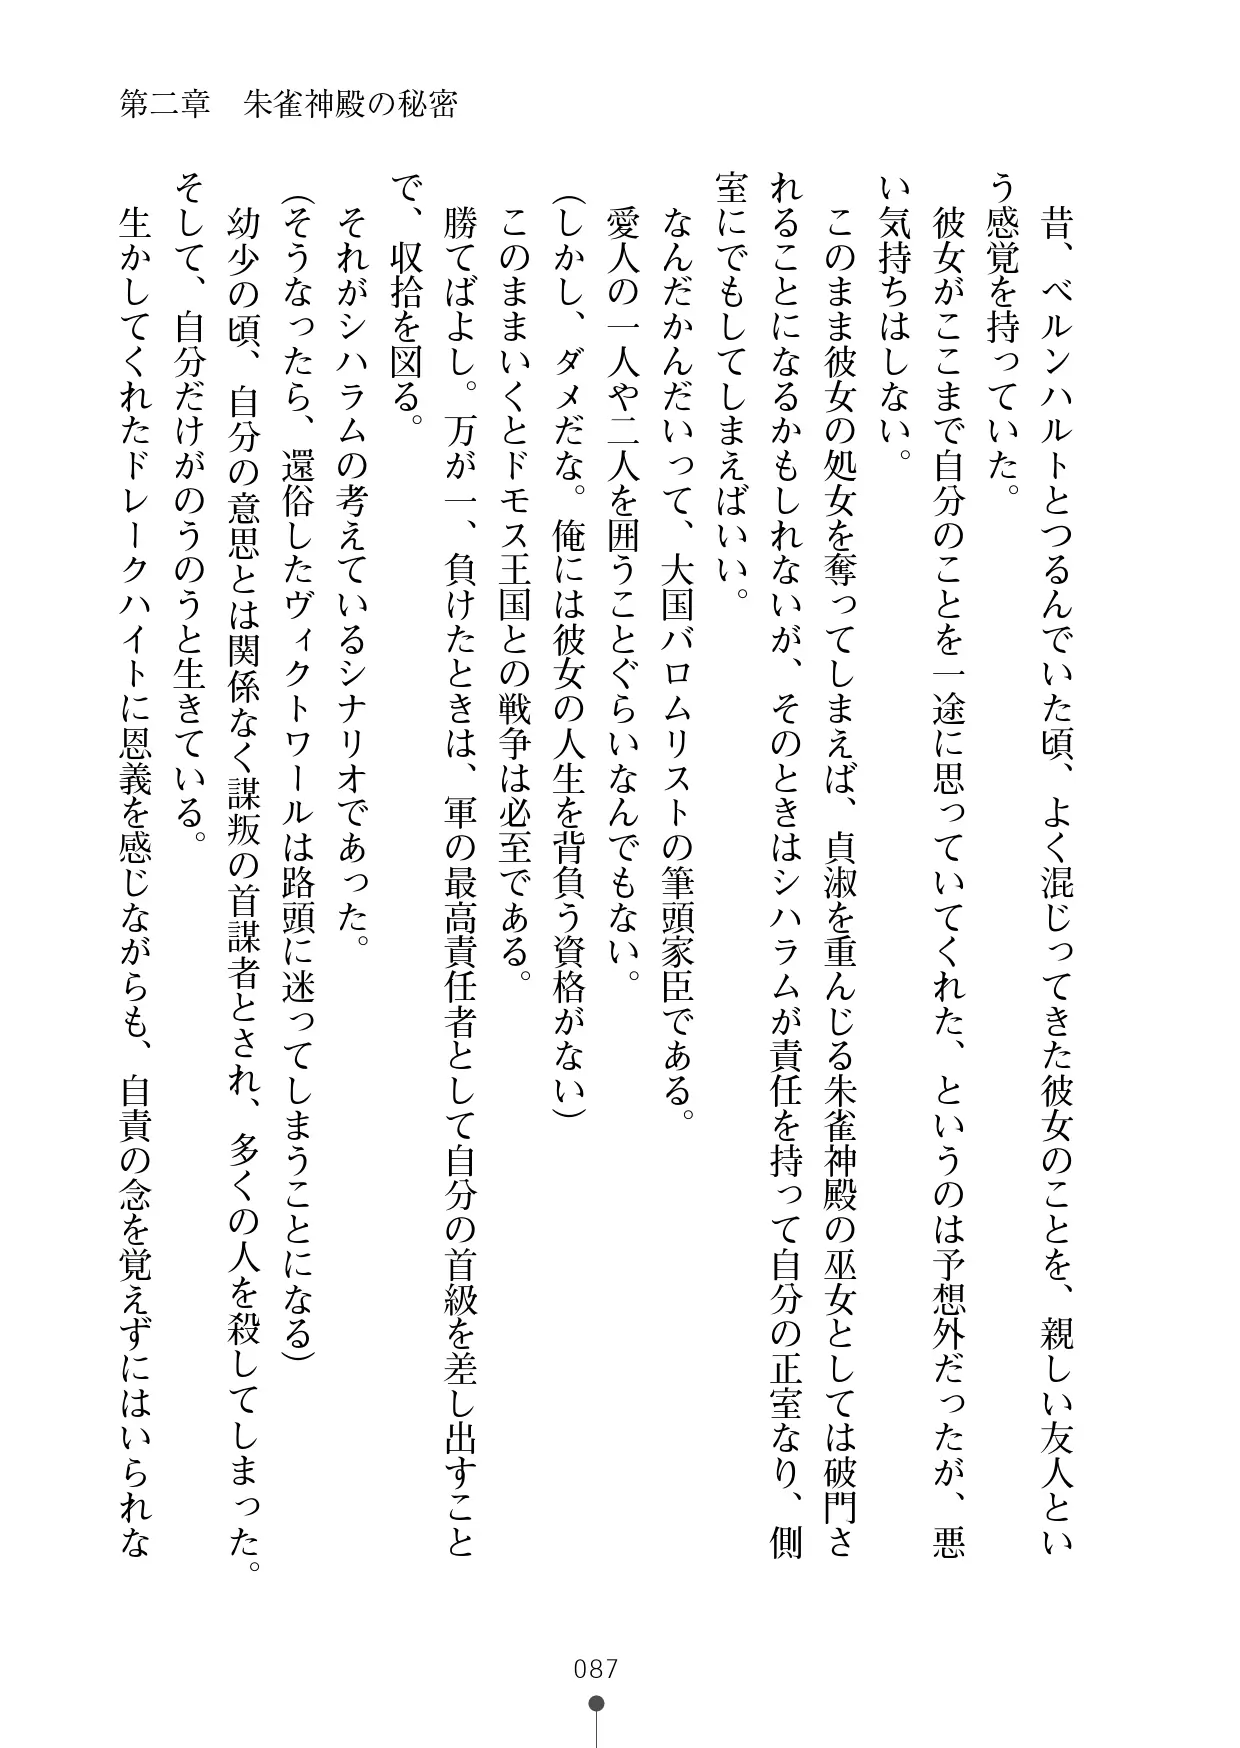 第二章　朱雀神殿の秘密
　昔、ベルンハルトとつるんでいた頃、よく混じってきた彼女のことを、親しい友人とい
う感覚を持っていた。
　彼女がここまで自分のことを一途に思っていてくれた、というのは予想外だったが、悪
い気持ちはしない。
　このまま彼女の処女を奪ってしまえば、貞淑を重んじる朱雀神殿の巫女としては破門さ
れることになるかもしれないが、そのときはシハラムが責任を持って自分の正室なり、側
室にでもしてしまえばいい。
　なんだかんだいって、大国バロムリストの筆頭家臣である。
　愛人の一人や二人を囲うことぐらいなんでもない。
（しかし、ダメだな。俺には彼女の人生を背負う資格がない）
　このままいくとドモス王国との戦争は必至である。
　勝てばよし。万が一、負けたときは、軍の最高責任者として自分の首級を差し出すこと
で、収拾を図る。
　それがシハラムの考えているシナリオであった。
（そうなったら、還俗したヴィクトワールは路頭に迷ってしまうことになる）
　幼少の頃、自分の意思とは関係なく謀叛の首謀者とされ、多くの人を殺してしまった。
そして、自分だけがのうのうと生きている。
　生かしてくれたドレークハイトに恩義を感じながらも、自責の念を覚えずにはいられな
087